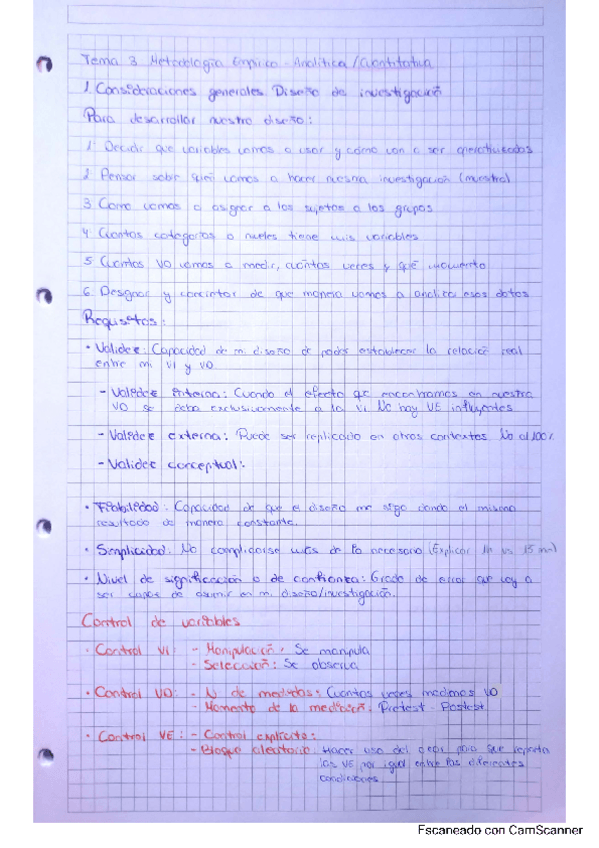 Tema 3 Metodología Empírico - Analítica / Cuantitativa
1. Consideraciones generales Diseño de investigación
Para desarrollar nuestro diseño:
1. Decidir que variables vamos a usar y como van a ser operativizadas
2. Pensar sobre quei vamos a hacer nuestra investigación (muestra)
3. Como vamos a asignar a los sujetos a los grupos
4. Cuantas categorías o niveles tiene mis variables
5. Cuántas VD vamos a medir, cuántas veces y qué momento
6. Designar y concretar de que manera vamos a analizar esos datos
Requisitos:
· Validez: Capacidad de mi diseño de poder establecer la relación real
entre mi VI y VD
- Validez interna: Cuando el efecto que encontramos en nuestra
VD se deba exclusivamente a la VI. No hay VE influyentes
- Validez externa: Puede ser replicado en otros contextos No al 100%
- Validez conceptual:
· Fiabilidad: Capacidad de que el diseño me siga dando el mismo
resultado de manera constante.
· Simplicidad: No complicarse más de lo necesario (Explicar 1h vs 15 min)
· Nivel de significación o de confianza: Grado de error que voy a
ser capaz de asumir en mi diseño/investigación.
Control de variables
· Control VI: - Manipulación: Se manipula
- Selección: Se observa
· Control VD: - N de medidas: Cuantas veces medimos VD
- Momento de la medición: Pretest - Postest
· Control VE: - Control explícito:
- Bloque aleatorio: Hacer uso del azar para que reparta
las VE por igual entre las diferentes
condiciones
Escaneado con CamScanner